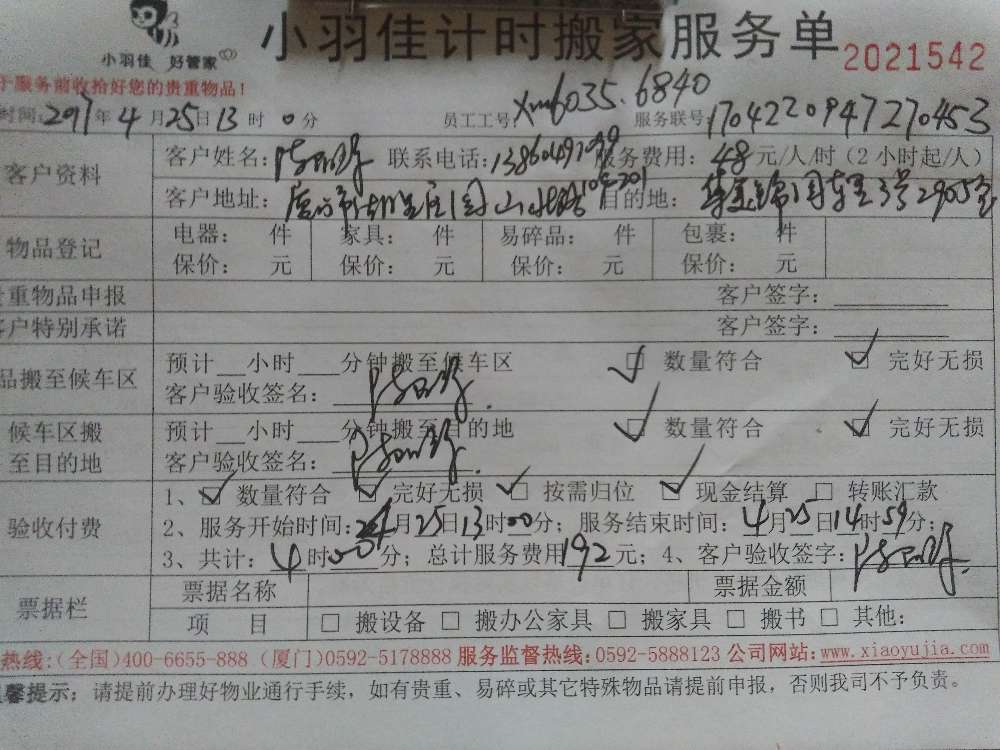 小羽佳 好管家
小羽佳计时搬家服务单
2021542
于服务前收拾好您的贵重物品!
时间:2017年4月25日13时0分 员工工号 xm6035.6840 服务联号:170422094727 0453
客户资料
客户姓名: 联系电话: 服务费用:48元/人/时(2小时起/人)
客户地址: 目的地:
物品登记
电器: 件 家具: 件 易碎品: 件 包裹: 件
保价: 元 保价: 元 保价: 元 保价: 元
贵重物品申报 客户签字:
客户特别承诺 客户签字:
品搬至候车区
预计__小时___分钟搬至候车区 数量符合 完好无损
客户验收签名:
候车区搬至目的地
预计__小时___分钟搬至目的地 数量符合 完好无损
客户验收签名:
验收付费
1、数量符合 完好无损 按需归位 现金结算 转账汇款
2、服务开始时间:4月25日13时00分;服务结束时间:4月25日14时59分;
3、共计:4时00分;总计服务费用192元;4、客户验收签字:
票据栏
票据名称 票据金额
项 目 □ 搬设备 □ 搬办公家具 □ 搬家具 □ 搬书 □ 其他:
热线:(全国)400-6655-888 (厦门)0592-5178888 服务监督热线:0592-5888123 公司网站:www.xiaoyujia.com
温馨提示:请提前办理好物业通行手续,如有贵重、易碎或其它特殊物品请提前申报,否则我司不予负责。